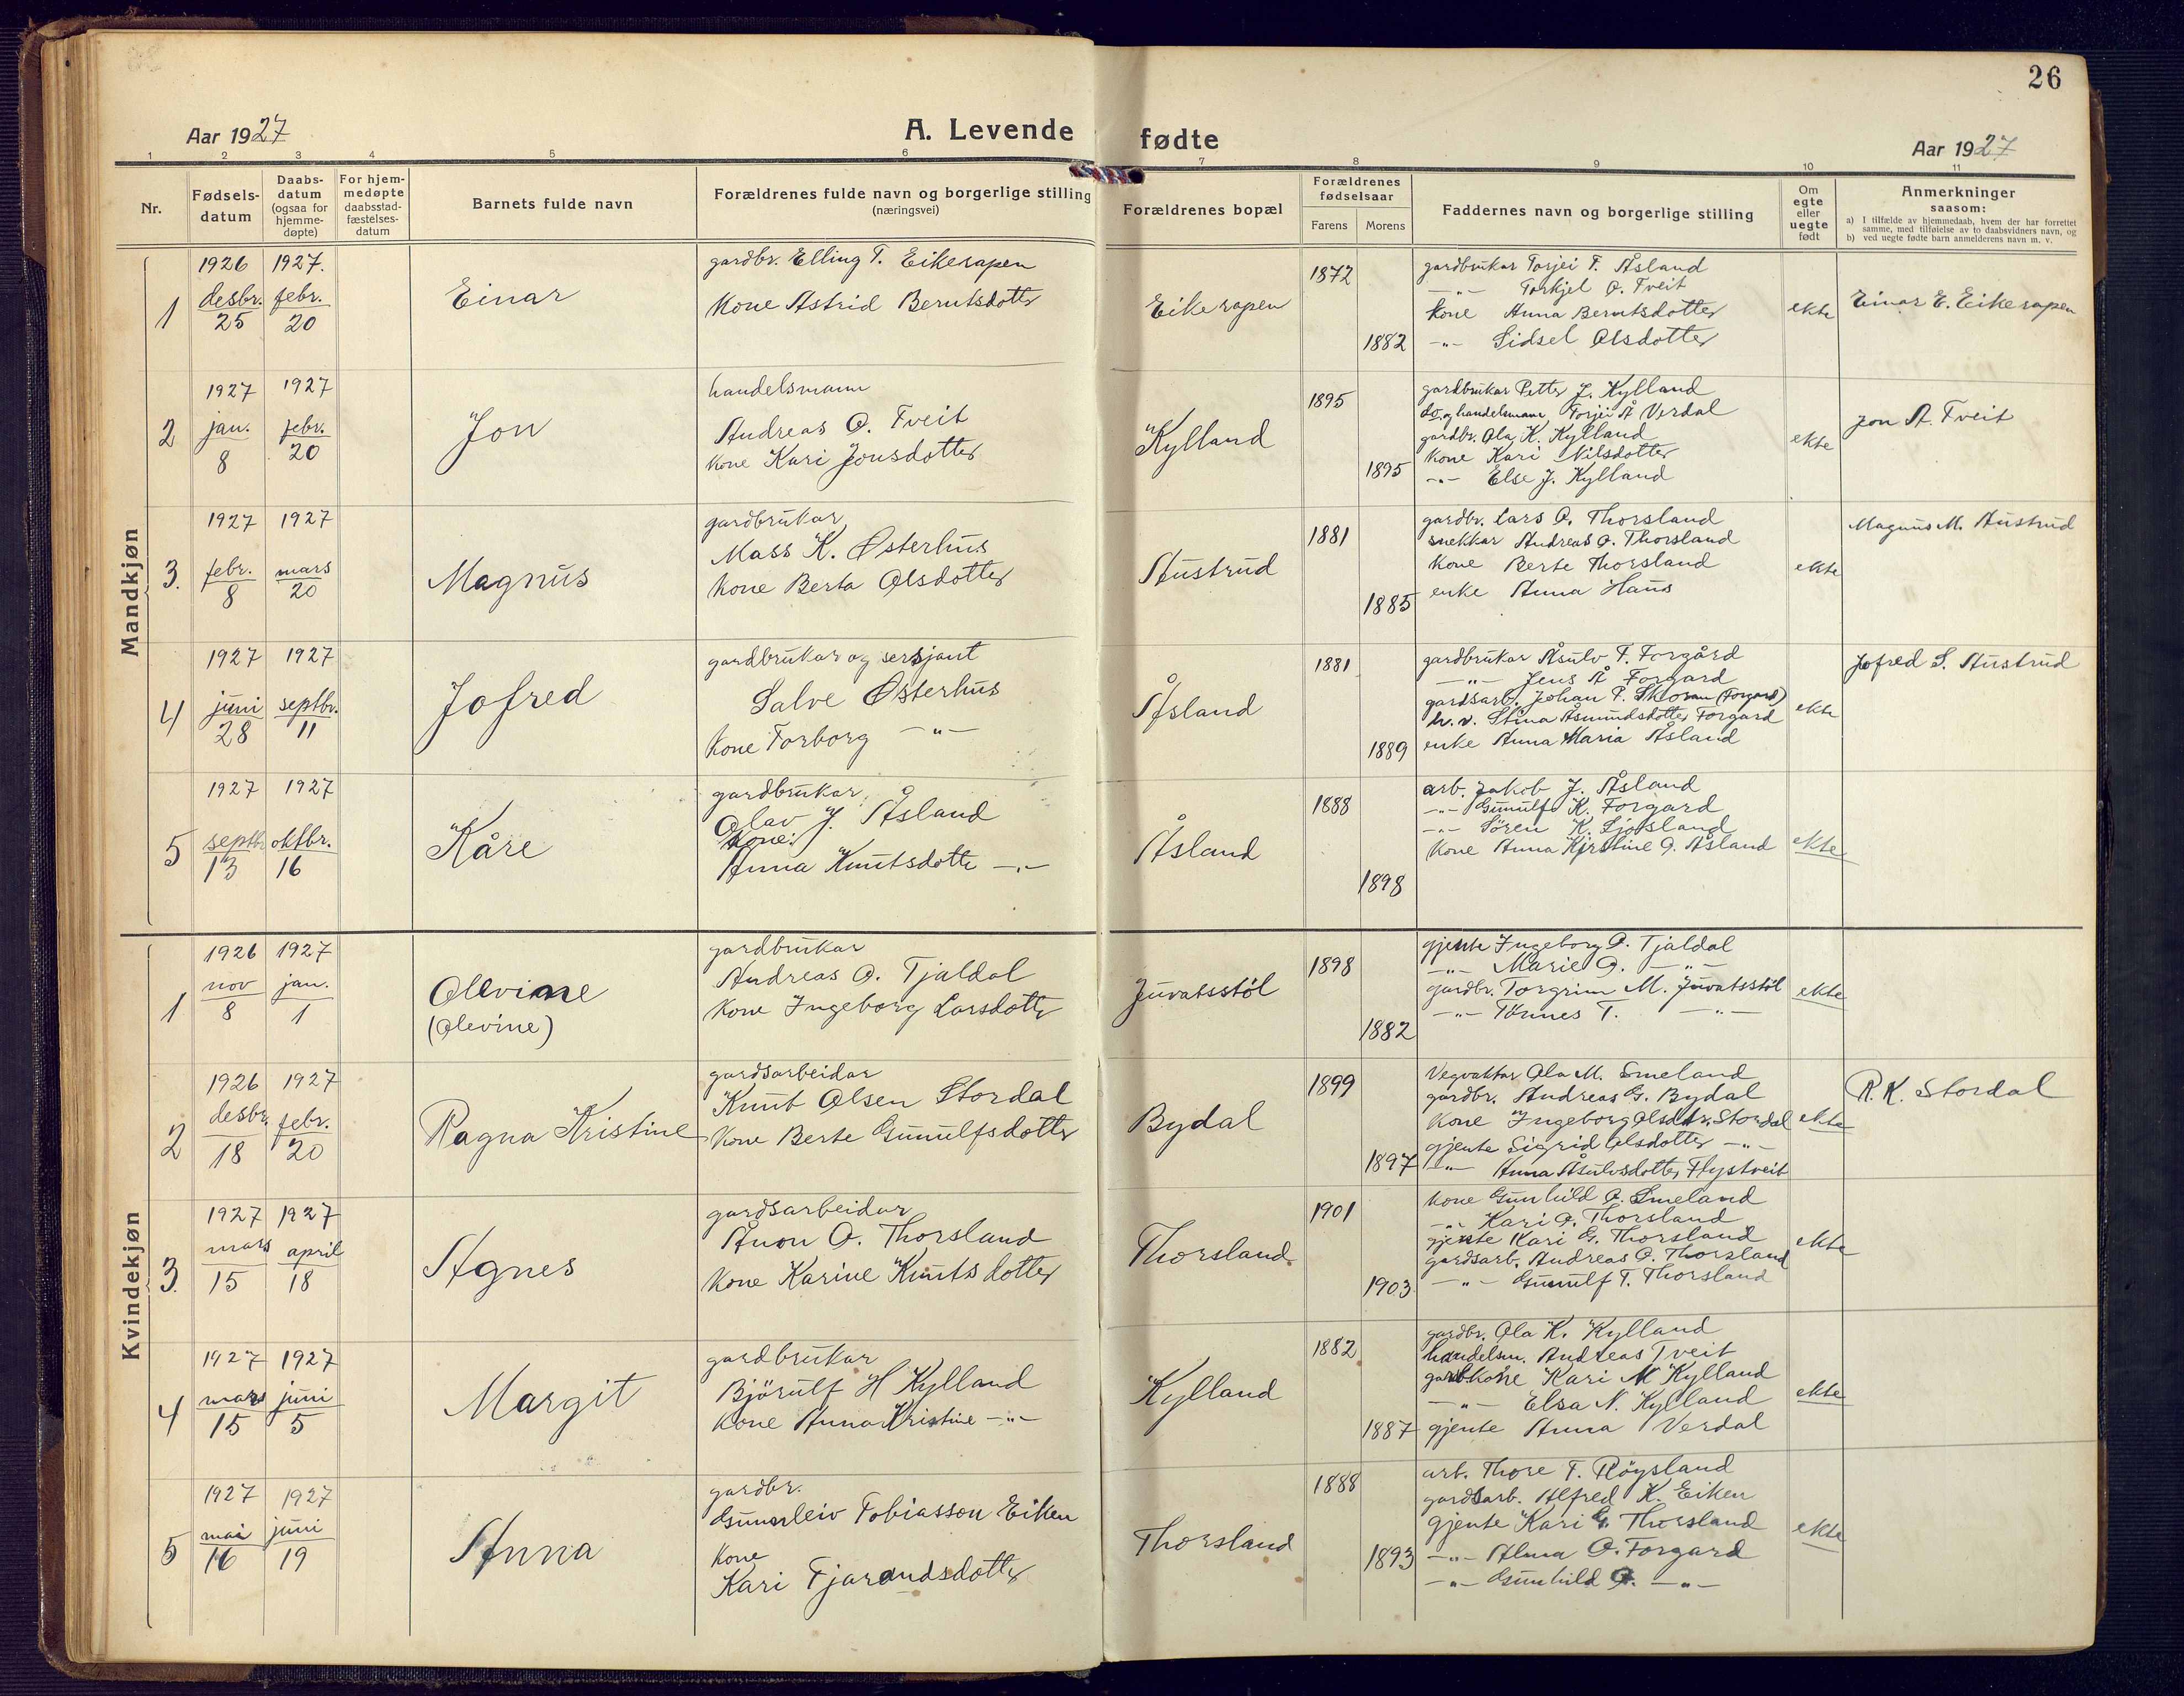 26
Aar 1927
A. Levende fødte
Aar 1927
1 2 3 4 5 6 7 8 9 10 11
Nr.
Fødsels-
datum
Daabs-
datum
(ogsaa for
hjemme-
døpte)
For hjem-
medøpte
daabsstad-
fæstelses-
datum
Barnets fulde navn
Forældrenes fulde navn og borgerlige stilling
(næringsvei)
Forældrenes bopæl
Forældrenes
fødselsaar
Farens
Morens
Faddernes navn og borgerlige stilling
Om
egte
eller
uegte
født
Anmerkninger
saasom:
a) I tilfælde av hjemmedaab, hvem der har forrettet
samme, med tilføielse av to daabsvidners navn, og
b) ved uegte fødte barn anmelderens navn m. v.
Mandkjøn
1
1926
desbr.
25
1927.
febr.
20
Einar
gardbr. Elling T. Eikerapen
Kone Astrid Berntsdotter
Eikerapen
1872
1882
gardbrukar Torjei T. Åsland
—„— Torkjel O. Tveit
Kone Anna Berntsdotter
—„— Sidsel Olsdotter
ekte
Einar E. Eikerapen
2
1927
jan.
8
1927
febr.
20
Jon
handelsmann
Andreas O. Tveit
Kone Kari Jonsdotter
Kylland
1895
1895
gardbrukar Petter J. Kylland
do. og handelsmann Torjei Å Verdal
gardbr. Ola K. Kylland
Kone Kari Nilsdotter
—„— Else J. Kylland
ekte
Jon A. Tveit
3.
1927
febr.
8
1927
mars
20
Magnus
gardbrukar
Mass K. Østerhus
Kone Berta Olsdotter
Austrud
1881
1885
gardbr. Lars O. Thorsland
snekkar Andreas O. Thorsland
Kone Berte Thorsland
enke Anna Haus
ekte
Magnus M. Austrud
4
1927
juni
28
1927
septbr.
11
Jofred
gardbrukar og sersjant
Salve Østerhus
Kone Torborg —„—
Åsland
1881
1889
gardbrukar Åsulv T. Forgård
—„— Jens Å Forgard
gardsarb. Johan P. (Forgard)
Stina Åsmundsdotter Forgard
enke Anna Maria Åsland
ekte
Jofred S. Austrud
5
1927
septbr
13
1927
oktbr.
16
Kåre
gardbrukar
Olav J. Åsland
Kone:
Anna Knutsdotter —„—
Åsland
1888
1898
arb. Jakob J. Åsland
—„— Gunulf K. Forgard
—„— Sören K. Ljosland
Kone Anna Kjrstine O. Åsland
ekte
Kvindekjøn
1
1926
nov
8
1927
jan.
1
Olevine
(Olevine)
gardbrukar
Andreas O. Tjaldal
Kone Ingeborg Larsdotter
Juvatsstöl
1898
1882
gjente Ingeborg O. Tjaldal
—„— Marie O. —„—
gardbr. Torgrim M. Juvatsstöl
—„— Tönnes T. —„—
ekte
2
1926
desbr.
18
1927
febr.
20
Ragna Kristine
gardsarbeidar
Knut Olsen Stordal
Kone Berte Gunulfsdotter
Bydal
1899
1897
Vegvaktar Ola M. Smeland
gardbr. Andreas G. Bydal
Kone Ingeborg Olsdtr. Stordal
gjente Sigrid Olsdotter —„—
—„— Anna Åsulvsdotter Flystveit
ekte
R. K. Stordal
3.
1927
mars
15
1927
april
18
Agnes
gardsarbeidar
Ånon O. Thorsland
Kone Karine Knutsdotter
Thorsland
1901
1903
Kone Gunhild O. Smeland
—„— Kari O. Thorsland
gjente Kari G. Thorsland
gardsarb. Andreas O. Thorsland
—„— Gunulf T. Thorsland
ekte
4
1927
mars
15
1927
juni
5
Margit
gardbrukar
Björulf H Kylland
Kone Anna Kristine —„—
Kylland
1882
1887
gardbr. Ola K. Kylland
handelsm. Andreas Tveit
gardbkone Kari M Kylland
—„— Elsa N. Kylland
gjente Anna Verdal
ekte
5
1927
mai
16
1927
juni
19
Anna
gardbr.
Gunnleiv Tobiasson Eiken
Kone
Kari Tjarandsdotter
Thorsland
1888
1893
arb. Thore T. Röysland
gardsarb. Alfred K. Eiken
gjente Kari G. Thorsland
—„— Alma O. Forgard
—„— Gunhild O. —„—
ekte